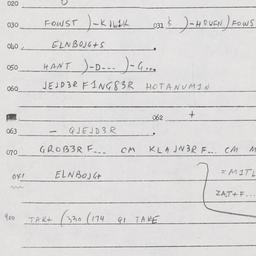 020
030 FOWST )-KILIK 031 § )-HOVEN) FOWS
040 ELNBOJG+S .
050 HANT )-D--- )-G...
060 JEJD3R F1NG83R HOTANUM1N
062 +
063 - QJEJD3R .
070 GROB3R F... CM KLAJN3R F... CM M
071 ELNBOJG+ = MITL
ZAT+F...
400 TAR+ (330 (174 91 TAKE